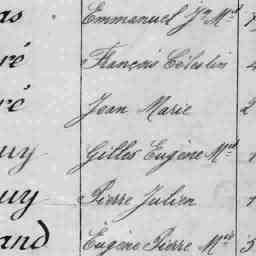 as Emmanuel Jn Md 7
ré François Célestin 4
ré Jean Marie 2
uy Gilles Eugène Md 1
uy Pierre Julien 1
and Eugène Pierre Md 5